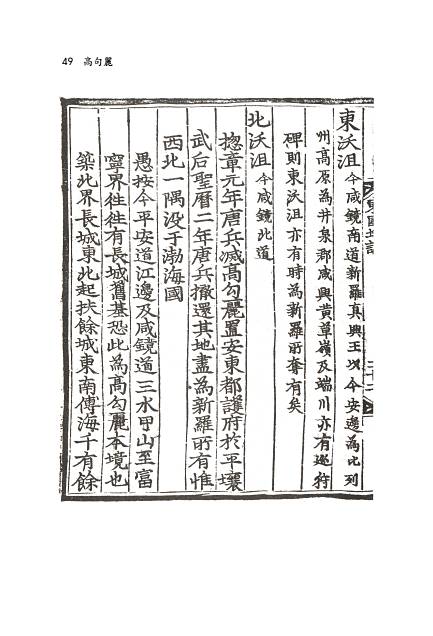 49 高句麗
東沃沮今咸鏡南道新羅真興王以今安邊為比列
州高原為井泉郡咸興黃草嶺及端川亦有巡狩
碑則東沃沮亦有時為新羅所奪有矣
北沃沮今咸鏡北道
摠章元年唐兵滅高勾麗置安東都護府於平壤
武后聖曆二年唐兵撤還其地盡為新羅所有惟
西北一隅沒于渤海國
愚按今平安道江邊及咸鏡道三水甲山至富
寧界往往有長城舊基恐此為高勾麗本境也
築北界長城東北起扶餘城東南傅海千有餘